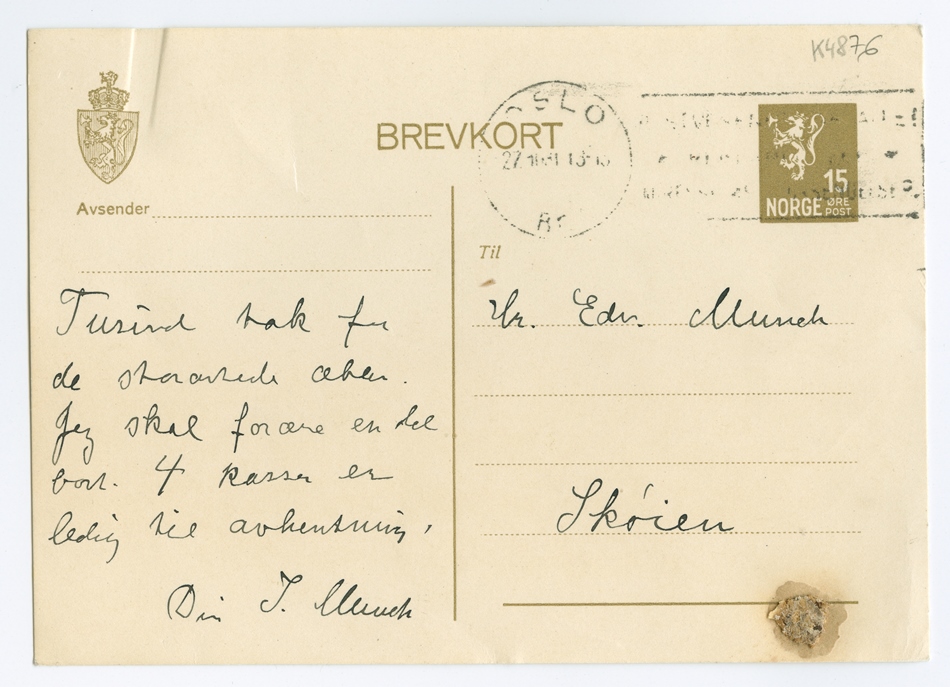 K4876
BREVKORT
OSLO
15
ØRE
NORGE POST
Avsender
Til
Tusind tak for
de storartede æbler.
Jeg skal forære en del
bort. 4 kasser er
ledig til avhentning.
Din I. Munch
Hr. Edv. Munch
Skøien